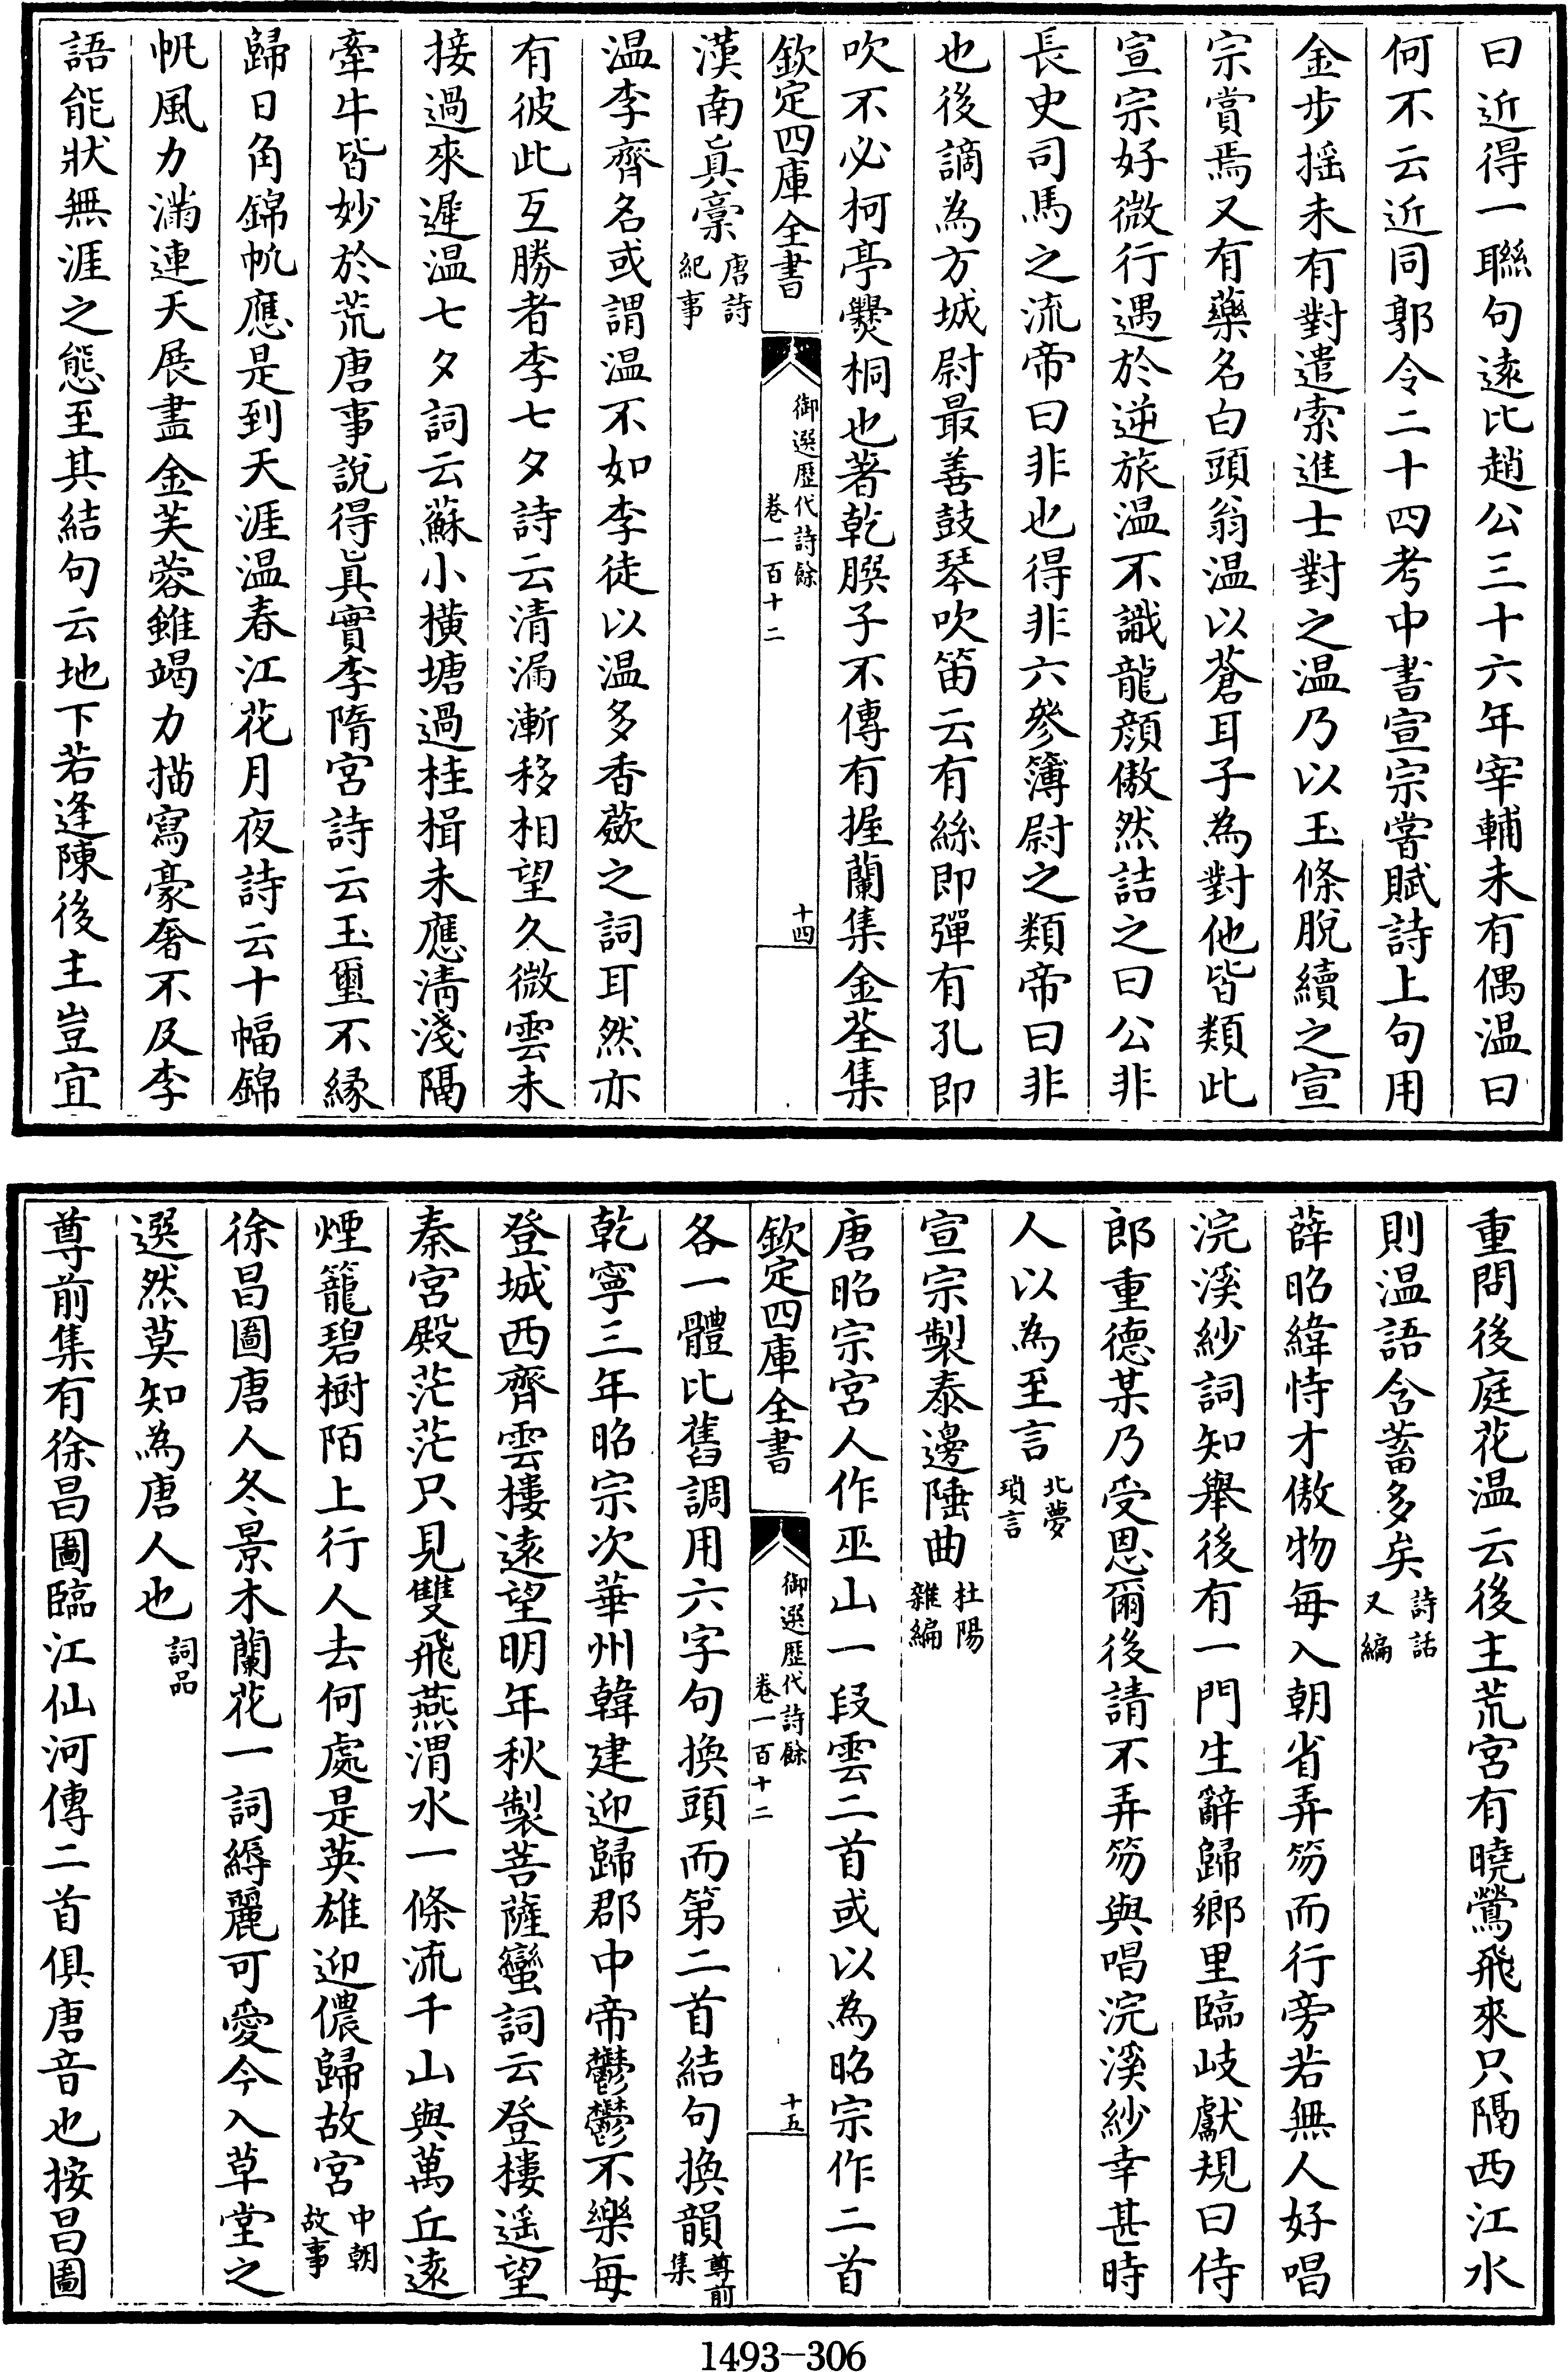 曰近得一聯句遠比趙公三十六年宰輔未有偶温曰
何不云近同郭令二十四考中書宣宗嘗賦詩上句用
金步摇未有對遣索進士對之温乃以玉條脫續之宣
宗賞焉又有藥名白頭翁温以蒼耳子為對他皆類此
宣宗好微行遇於逆旅温不識龍顔傲然詰之曰公非
長史司馬之流帝曰非也得非六參簿尉之類帝曰非
也後謫為方城尉最善鼓琴吹笛云有絲即彈有孔即
吹不必柯亭爨桐也著乾𦠆子不傳有握蘭集金荃集
欽定四庫全書
御選歷代詩餘
卷一百十二
十四
漢南眞稾唐詩紀事
温李齊名或謂温不如李徒以温多香蘞之詞耳然亦
有彼此互勝者李七夕詩云清漏漸移相望久微雲未
接過來遲温七夕詞云蘇小橫塘過桂楫未應清淺隔
牽牛皆妙於荒唐事說得眞實李隋宮詩云玉璽不緣
歸日角錦帆應是到天涯温春江花月夜詩云十幅錦
帆風力滿連天展盡金芙蓉雖竭力描寫豪奢不及李
語能狀無涯之態至其結句云地下若逢陳後主豈宜
重問後庭花温云後主荒宮有曉鶯飛來只隔西江水
則温語含蓄多矣詩話又編
薛昭緯恃才傲物每入朝省弄笏而行旁若無人好唱
浣溪紗詞知舉後有一門生辭歸鄉里臨岐獻規曰侍
郎重德某乃受恩爾後請不弄笏與唱浣溪紗幸甚時
人以為至言北夢瑣言
宣宗製泰邊陲曲杜陽雜編
唐昭宗宮人作巫山一段雲二首或以為昭宗作二首
欽定四庫全書
御選歷代詩餘
卷一百十二
十五
各一體比舊調用六字句換頭而第二首結句換韻尊前集
乾寧三年昭宗次華州韓建迎歸郡中帝鬱鬱不樂每
登城西齊雲樓遠望明年秋製菩薩蠻詞云登樓遥望
秦宮殿茫茫只見雙飛燕渭水一條流千山與萬丘遠
煙籠碧樹陌上行人去何處是英雄迎儂歸故宮中朝故事
徐昌圖唐人冬景木蘭花一詞縟麗可愛今入草堂之
選然莫知為唐人也詞品
尊前集有徐昌圖臨江仙河傳二首俱唐音也按昌圖
1493-306